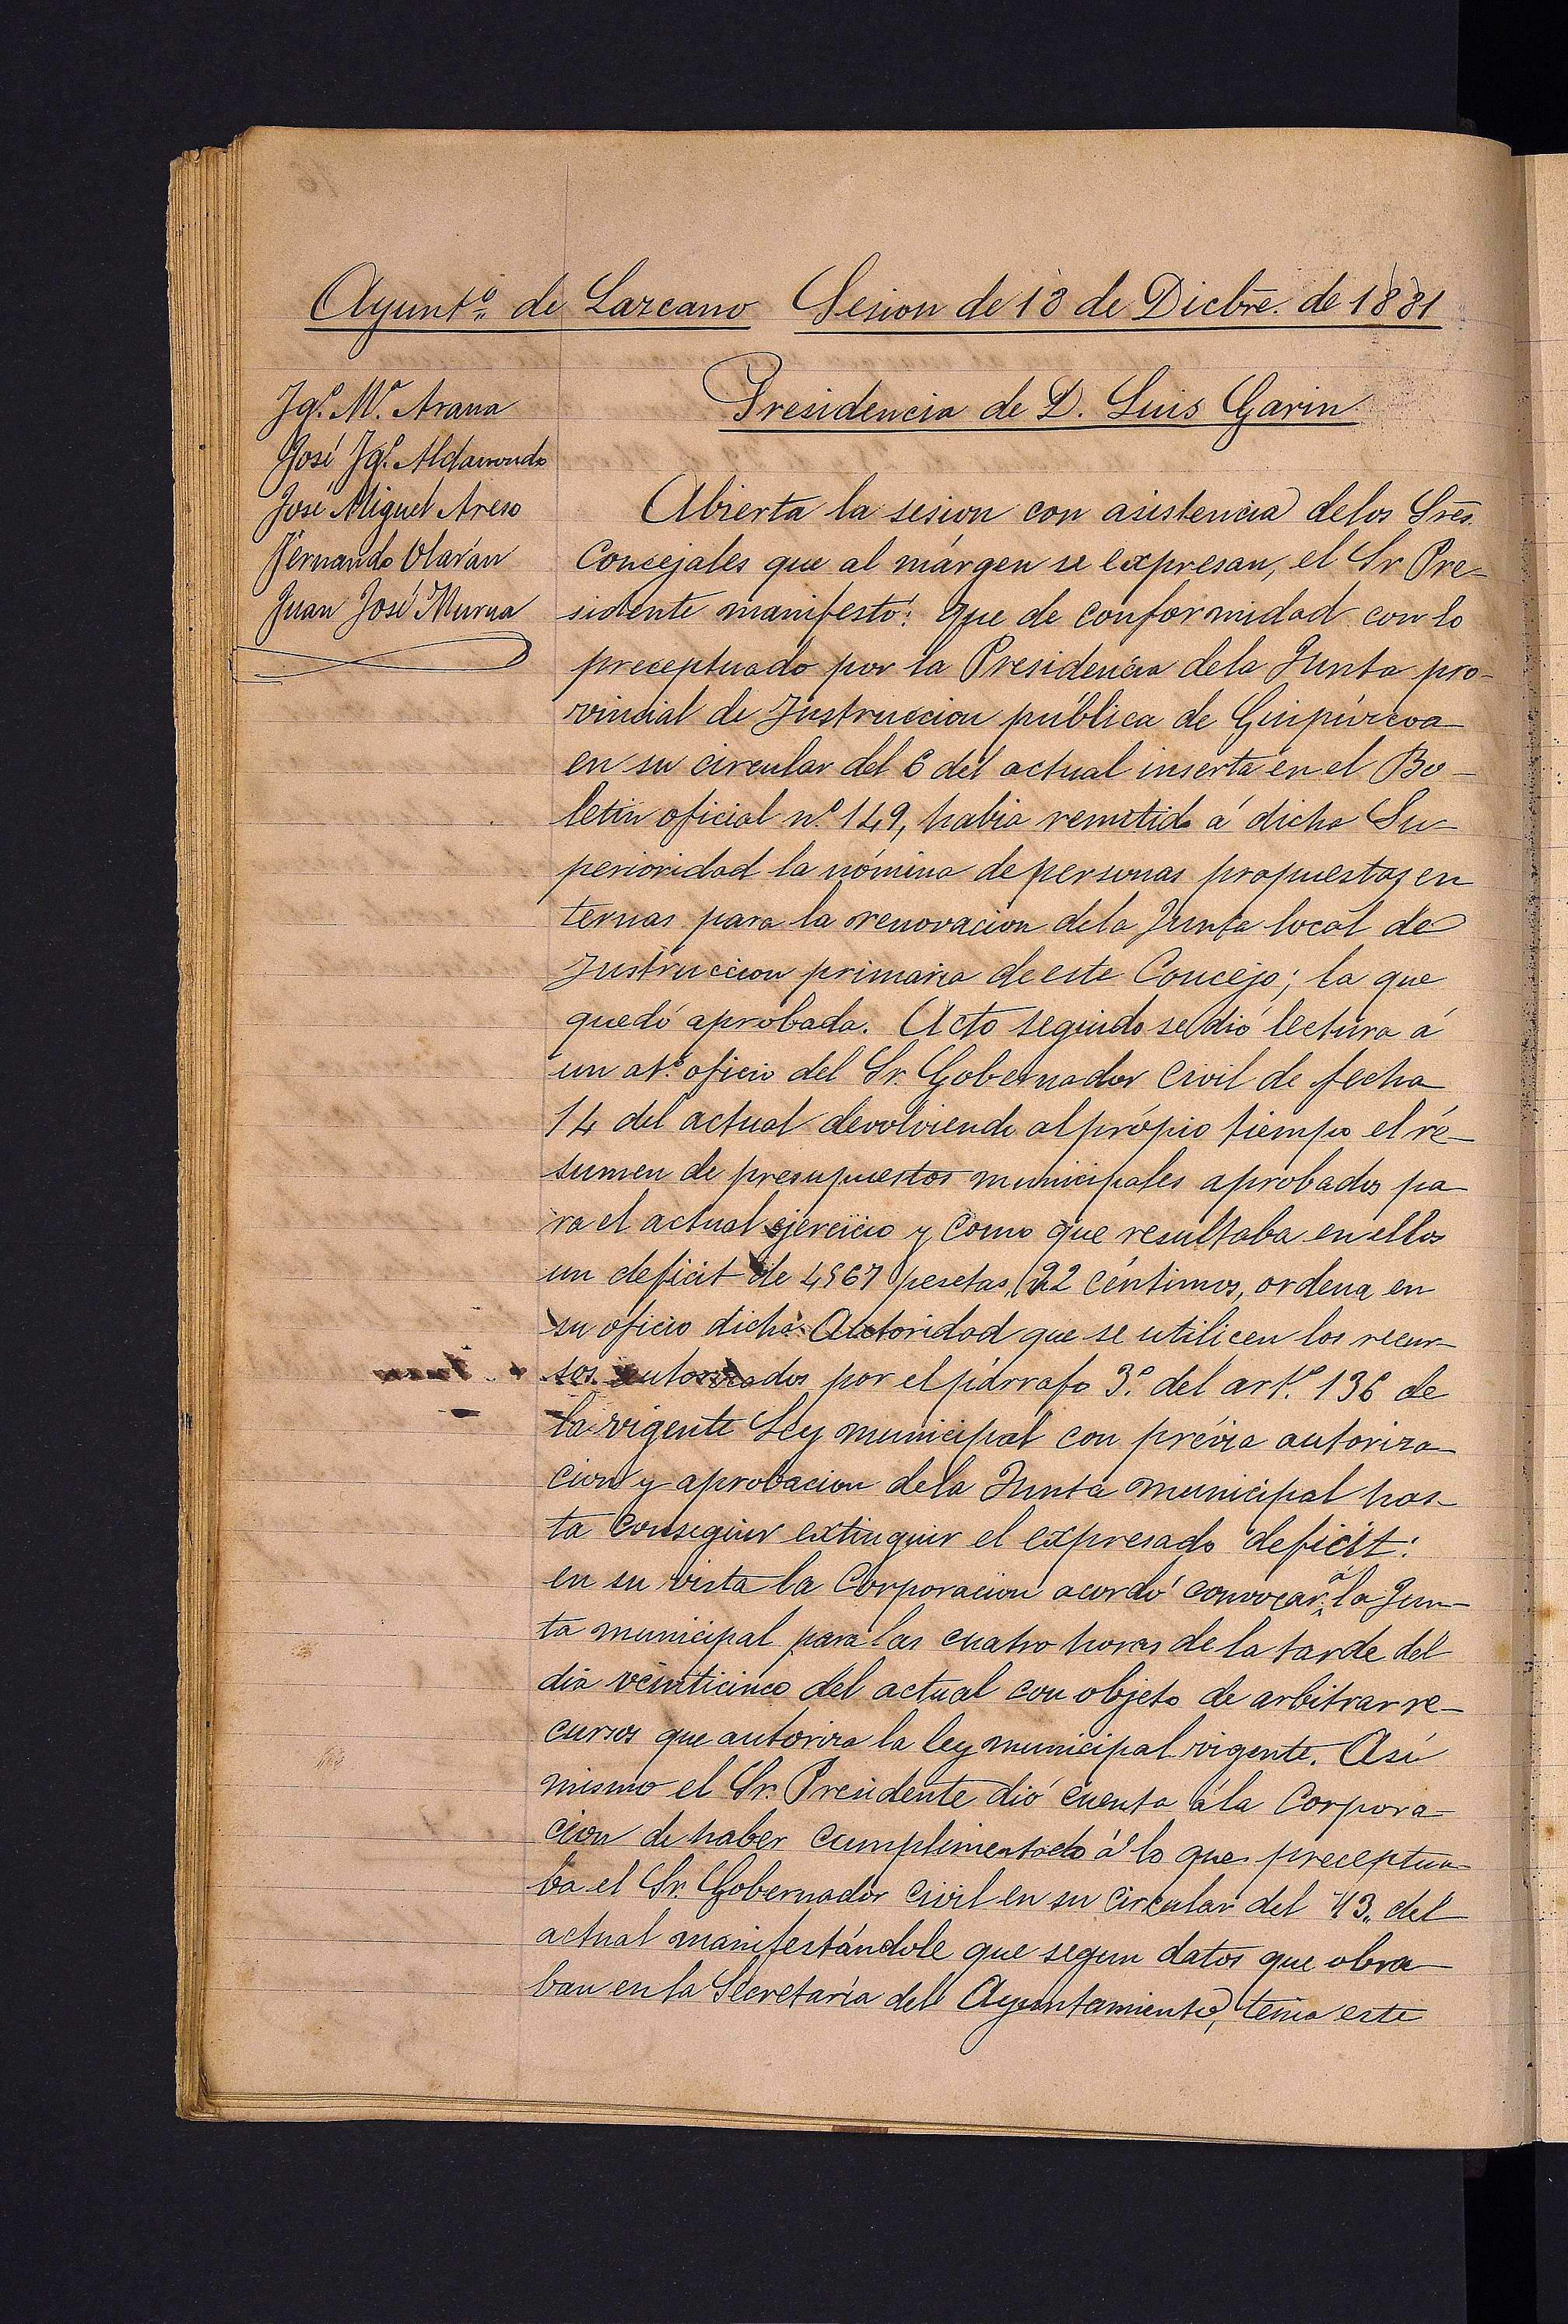 Ayunt.º de Lazcano Sesion de 18 de Dicbre. de 1881
Presidencia de D. Luis Garin
Jgº. Mª. Arana
José Jgº. Aldasoro
José Miguel Areso
Fernando Olarán
Juan José Murua
Abierta la sesion con asistencia delos Sres.
Concejales que al márgen se expresan, el Sr Pre-
sidente manifestó: que de conformidad con lo
preceptuado por la Presidencia dela Junta pro-
vincial de Instruccion pública de Guipúzcoa
en su circular del 6 del actual inserta en el Bo-
letin oficial nº. 149, habia remitido á dicha Su-
perioridad la nómina de personas propuestas en
ternas para la renovacion dela Junta local de
Instruccion primaria de este Concejo; la que
quedó aprobada. Acto seguido se dió lectura á
un atº. oficio del Sr. Gobernador Civil de fecha
14 del actual devolviendo al própio tiempo el re-
sumen de presupuestos municipales aprobados pa
ra el actual ejercicio y como que resultaba en ellos
un deficit de 4967 pesetas, 22 céntimos, ordena en
su oficio dicha Autoridad que se utilicen los recur-
sos autorizados por el párrafo 3º. del artº. 136 de
la vigente Ley municipal con prévia autoriza-
cion y aprobacion dela Junta municipal has-
ta conseguir extinguir el expresado deficit:
en su vista la Corporacion acordó convocar á la Jun-
ta municipal para las cuatro horas de la tarde del
dia veinticinco del actual con objeto de arbitrar re-
cursos que autoriza la ley municipal vigente. Asi
mismo el Sr. Presidente dió cuenta ála Corpora-
cion de haber cumplimentado á lo que preceptua-
ba el Sr. Gobernador Civil en su circular del 13. del
actual manifestándole que segun datos que obra-
ban en la Secretaría del Ayuntamiento, tenia este